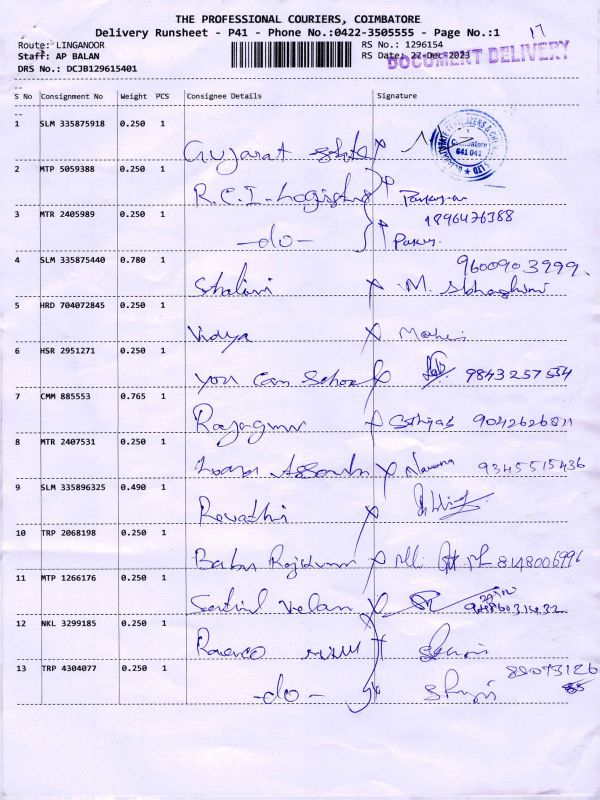 THE PROFESSIONAL COURIERS, COIMBATORE
Delivery Runsheet - P41 - Phone No.:0422-3505555 - Page No.:1
17
Route: LINGANOOR
RS No.: 1296154
Staff: AP BALAN
RS Date: 27-Dec-2023
DOCUMENT DELIVERY
DRS No.: DCJB129615401
S No Consignment No Weight PCS Consignee Details Signature
1 SLM 335875918 0.250 1
Gujarat State
Coimbatore
641 041
2 MTP 5059388 0.250 1
R.C.I. Logistics
3 MTR 2405989 0.250 1
1896476388
-do-
4 SLM 335875440 0.780 1
9600903999
Shalini M.
5 HRD 704072845 0.250 1
Vidya
6 HSR 2951271 0.250 1
You Can School 9843257554
7 CMM 885553 0.765 1
Rajaguru 9042626811
8 MTR 2407531 0.250 1
9345515436
9 SLM 335896325 0.490 1
Revathi
10 TRP 2068198 0.250 1
Babu 8148006996
11 MTP 1266176 0.250 1
Senthil Velan
12 NKL 3299185 0.250 1
13 TRP 4304077 0.250 1
-do-